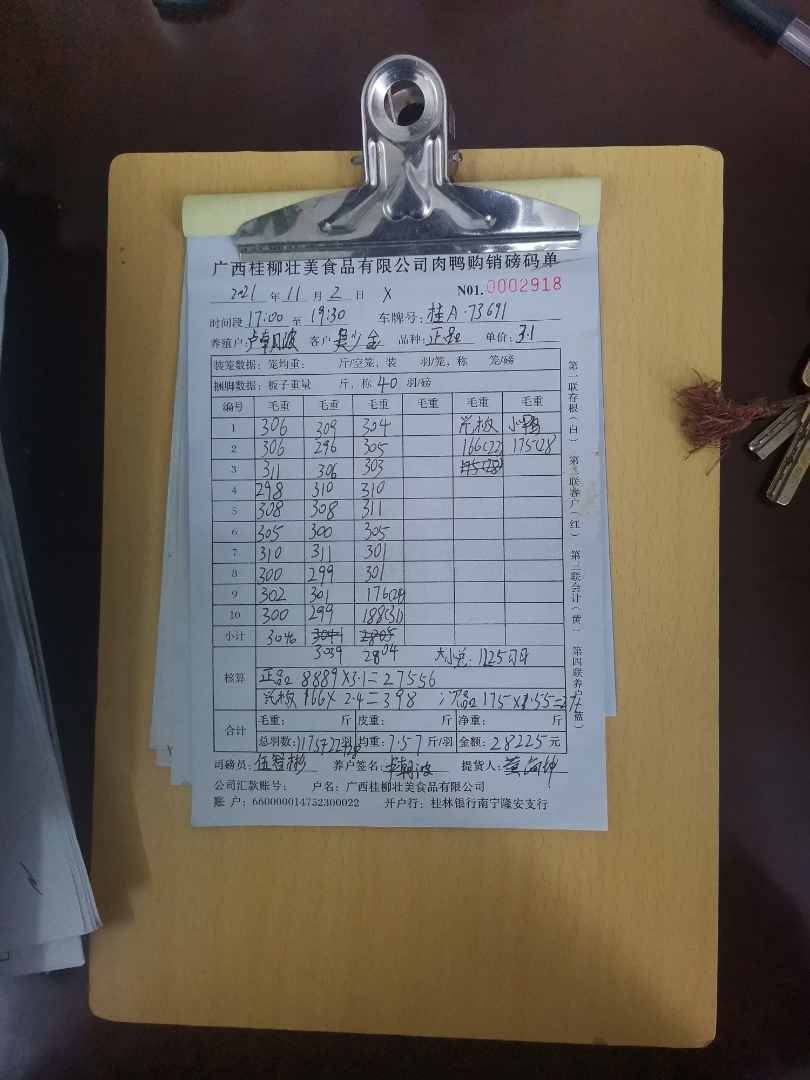 广西桂柳壮美食品有限公司肉鸭购销磅码单
2021 年 11 月 2 日 X N01.0002918
时间段 17:00 至 19:30 车牌号: 桂A·73691
养殖户: 卢朝波 客户 吴少金 品种: 正品 单价: 3.1
装笼数据: 笼均重: 斤/空笼, 装 羽/笼, 称 笼/磅
捆脚数据: 板子重量 斤, 称 40 羽/磅
编号 毛重 毛重 毛重 毛重 毛重 毛重
1 306 309 304 光板 小鸭
2 306 296 305 166(22) 175(28
3 311 306 303 175(28)
4 298 310 310
5 308 308 311
6 305 300 305
7 310 311 301
8 300 299 301
9 302 301 176(24)
10 300 299 188(31)
小计 3046 3041 2805
3039 2804 大小总: 1125
核算 正品 8889×3.1=27556
光板 166×2.4=398 175×1.55=271
合计 毛重: 斤 皮重: 斤 净重: 斤
总羽数: 羽 均重: 7.57 斤/羽 金额: 28225 元
司磅员: 伍智彬 养户签名: 卢朝波 提货人:
公司汇款账号: 户名: 广西桂柳壮美食品有限公司
账 户: 660000014752300022 开户行: 桂林银行南宁隆安支行
第一联存根(白) 第二联客户(红) 第三联会计(黄) 第四联养户(蓝)